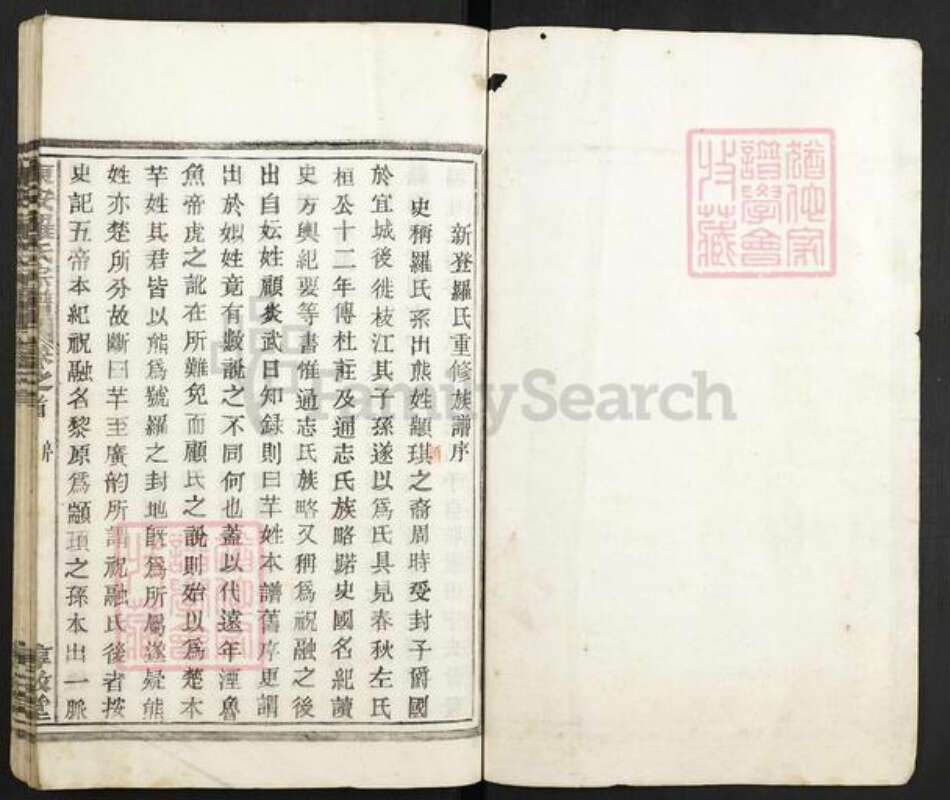 猶他家
譜學會
收藏
新登羅氏重修族譜序
史稱羅氏系出熊姓顓琪之裔周時受封子爵國
於宜城後徙枝江其子孫遂以為氏具見春秋左氏
桓公十二年傳杜註及通志氏族略路史國名紀讀
史方輿紀要等書惟通志氏族略又稱為祝融之後
出自妘姓顧炎武日知録則曰芉姓本譜舊序更謂
出於姻姓竟有數說之不同何也蓋以代遠年湮魯
魚帝虎之訛在所難免而顧氏之說則始以為楚本
芉姓其君皆以熊爲號羅之封地旣爲所屬遂疑熊
姓亦楚所分故斷曰芉至廣韵所謂祝融氏後者按
史記五帝本紀祝融名黎原爲顓頊之孫本出一脈
東安羅氏宗譜
卷之首
惇敘堂
FamilySearch